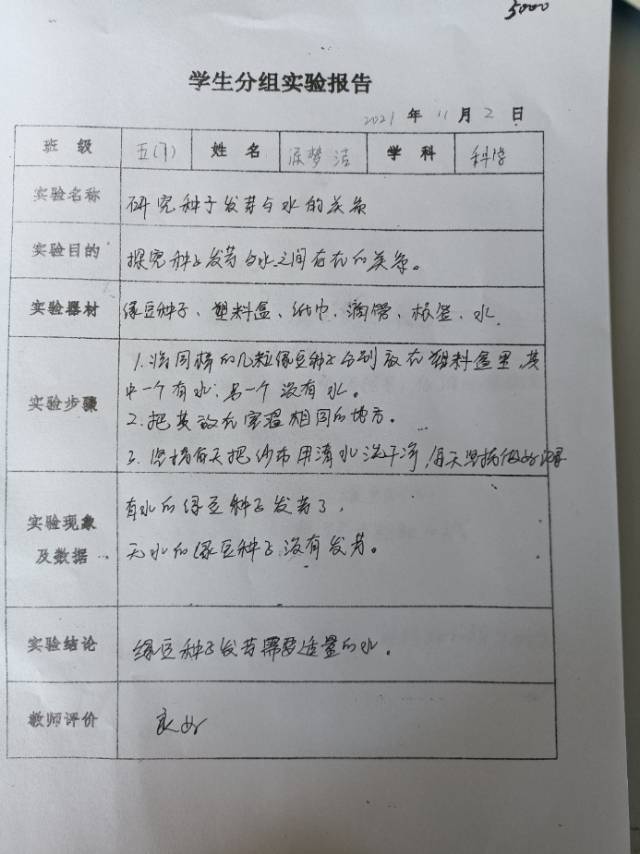 5000
学生分组实验报告
2021 年 11 月 2 日
班 级 五(1) 姓 名 梦洁 学 科 科学
实验名称 研究种子发芽与水的关系
实验目的 探究种子发芽与水之间存在的关系。
实验器材 绿豆种子、塑料盒、纸巾、滴管、标签、水
实验步骤
1.将同样的几粒绿豆种子分别放在塑料盒里,其
中一个有水,另一个没有水。
2.把其放在室温相同的地方。
3.坚持每天把纱布用清水洗干净,每天坚持做好记录
实验现象
及数据
有水的绿豆种子发芽了,
无水的绿豆种子没有发芽。
实验结论 绿豆种子发芽需要适量的水。
教师评价 良好